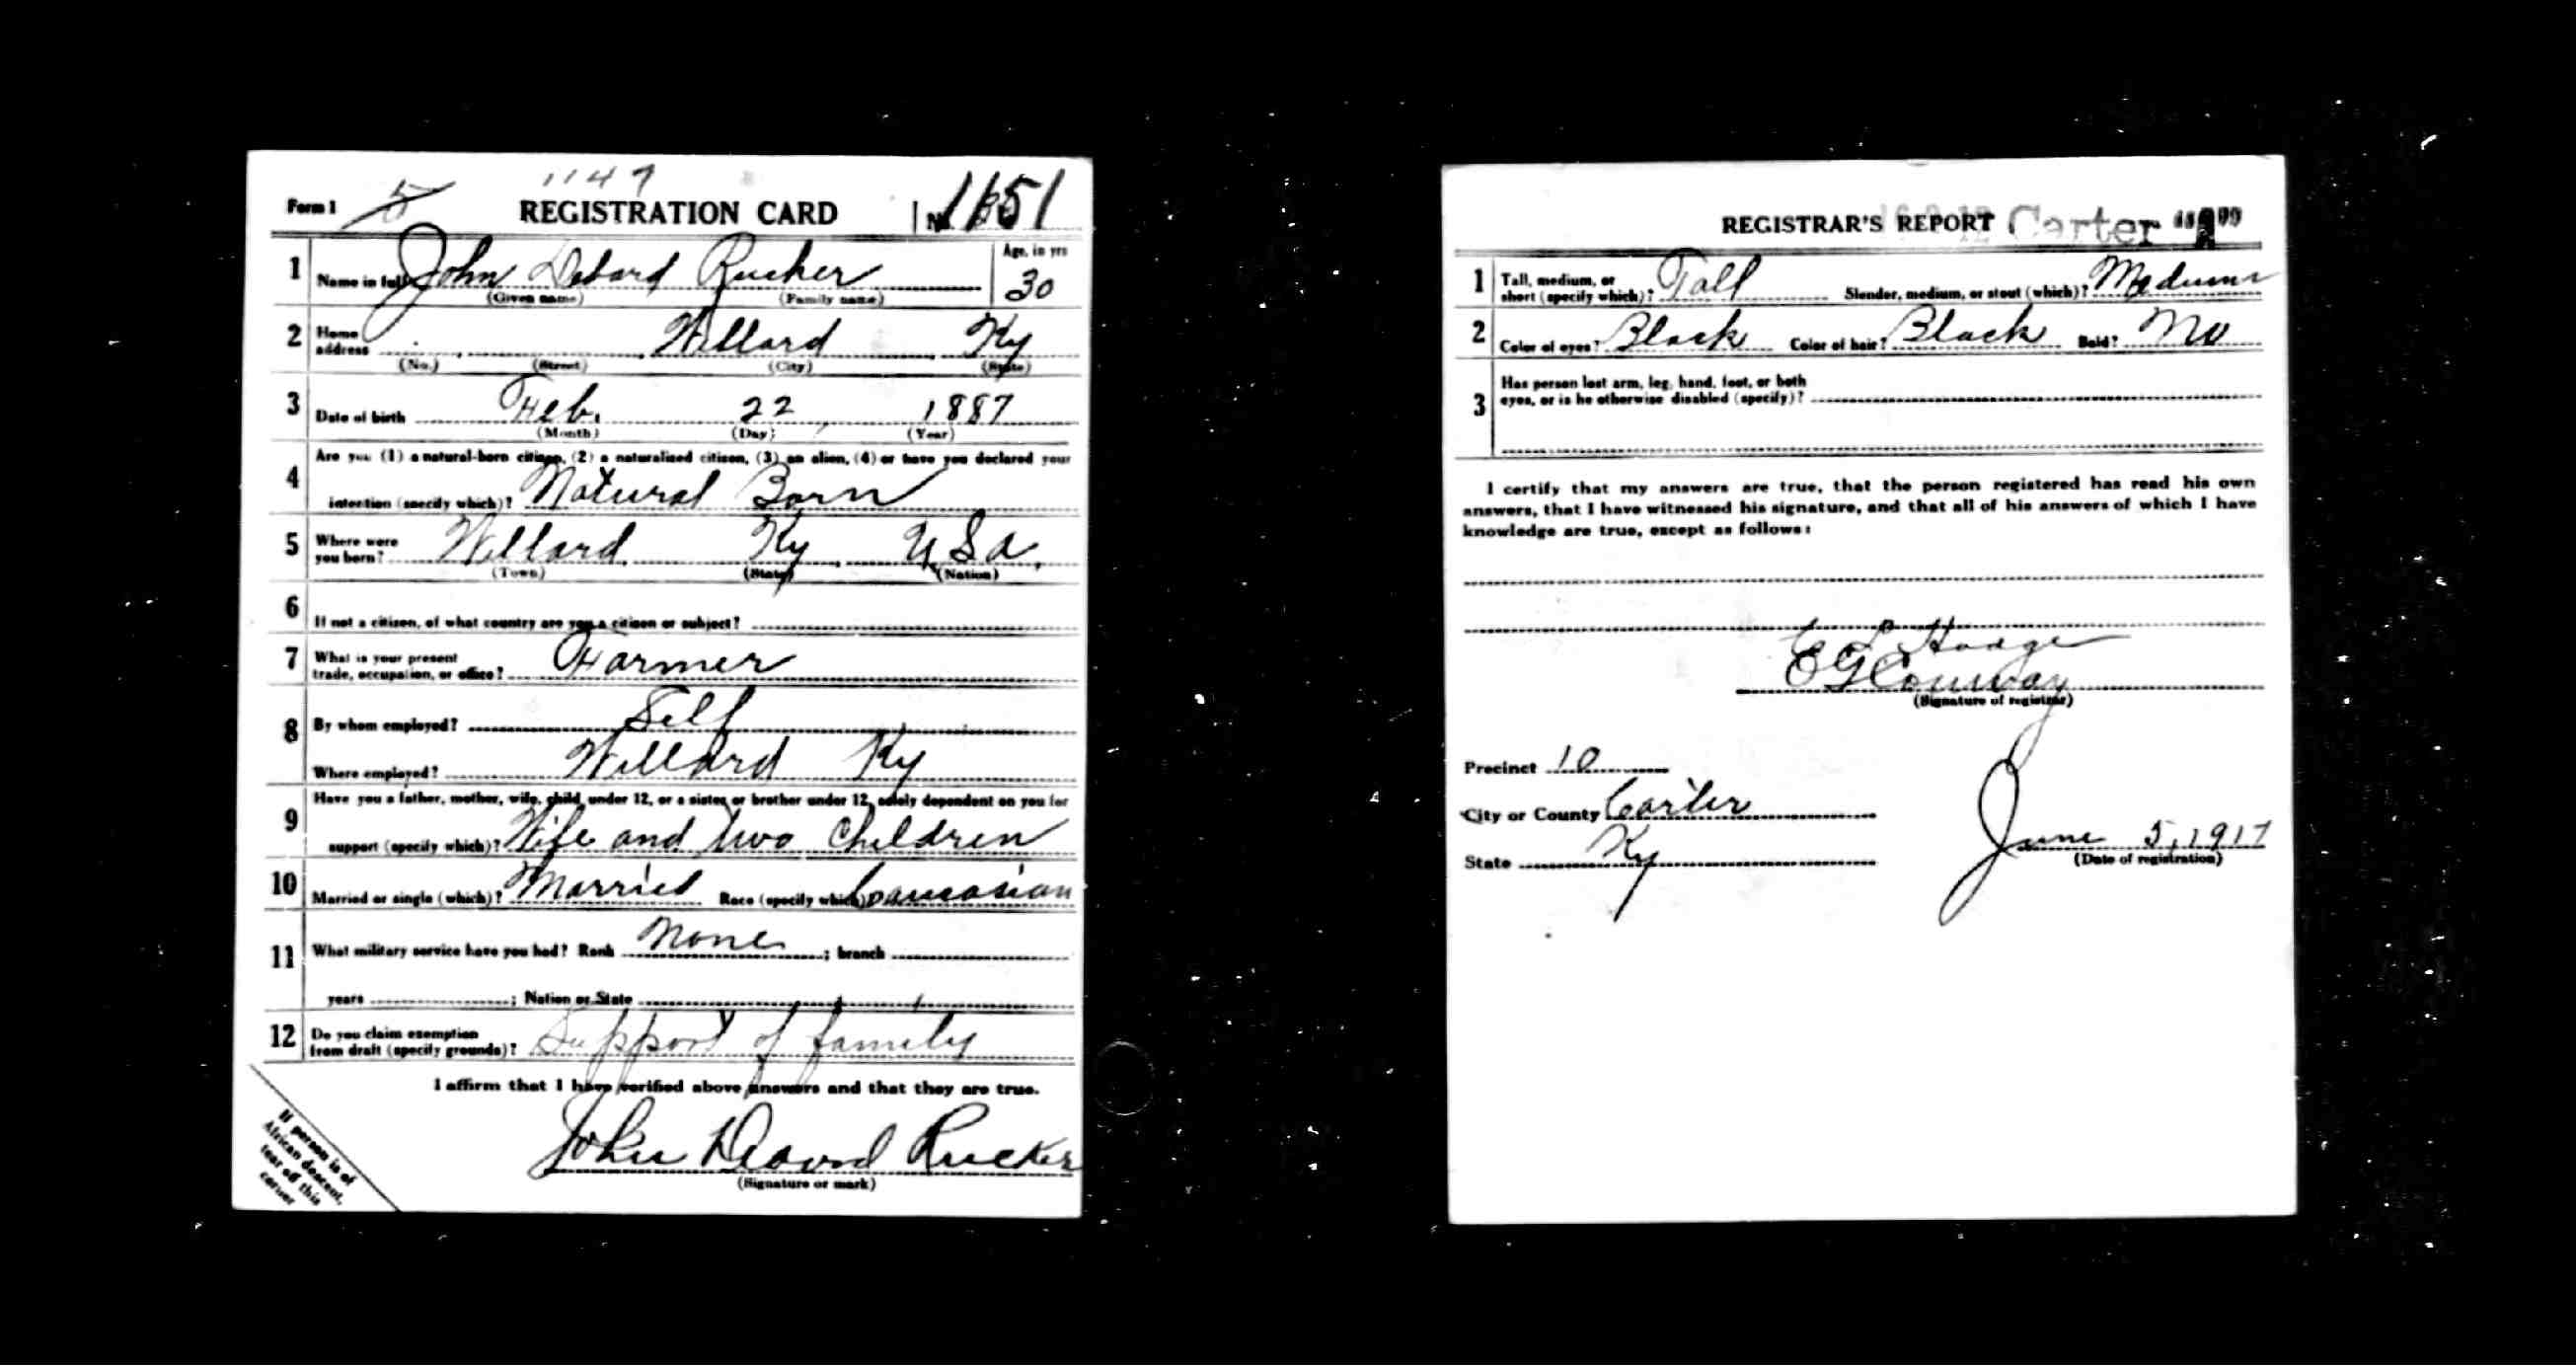 1147
Form 1 5 REGISTRATION CARD No. 1151
1 Name in full John Debord Rucker Age, in yrs 30
(Given name) (Family name)
2 Home address Willard Ky
(No.) (Street) (City) (State)
3 Date of birth Feb. 22 1887
(Month) (Day) (Year)
4 Are you (1) a natural-born citizen, (2) a naturalized citizen, (3) an alien, (4) or have you declared your
intention (specify which)? Natural Born
5 Where were you born? Willard Ky USA
(Town) (State) (Nation)
6 If not a citizen, of what country are you a citizen or subject?
7 What is your present trade, occupation, or office? Farmer
8 By whom employed? Self
Where employed? Willard Ky
9 Have you a father, mother, wife, child under 12, or a sister or brother under 12, solely dependent on you for
support (specify which)? Wife and two Children
10 Married or single (which)? Married Race (specify which) Caucasian
11 What military service have you had? Rank None ; branch
years ; Nation or State
12 Do you claim exemption from draft (specify grounds)? Support of family
I affirm that I have verified above answers and that they are true.
John Rucker
(Signature or mark)
If person is of
African descent,
tear off this
corner
REGISTRAR'S REPORT Carter
1 Tall, medium, or short (specify which)? Tall Slender, medium, or stout (which)? Medium
2 Color of eyes? Black Color of hair? Black Bald? No
3 Has person lost arm, leg, hand, foot, or both
eyes, or is he otherwise disabled (specify)?
I certify that my answers are true, that the person registered has read his own
answers, that I have witnessed his signature, and that all of his answers of which I have
knowledge are true, except as follows:
E L Hodge
E G Conway
(Signature of registrar)
Precinct 10
City or County Carter
State Ky
June 5, 1917
(Date of registration)